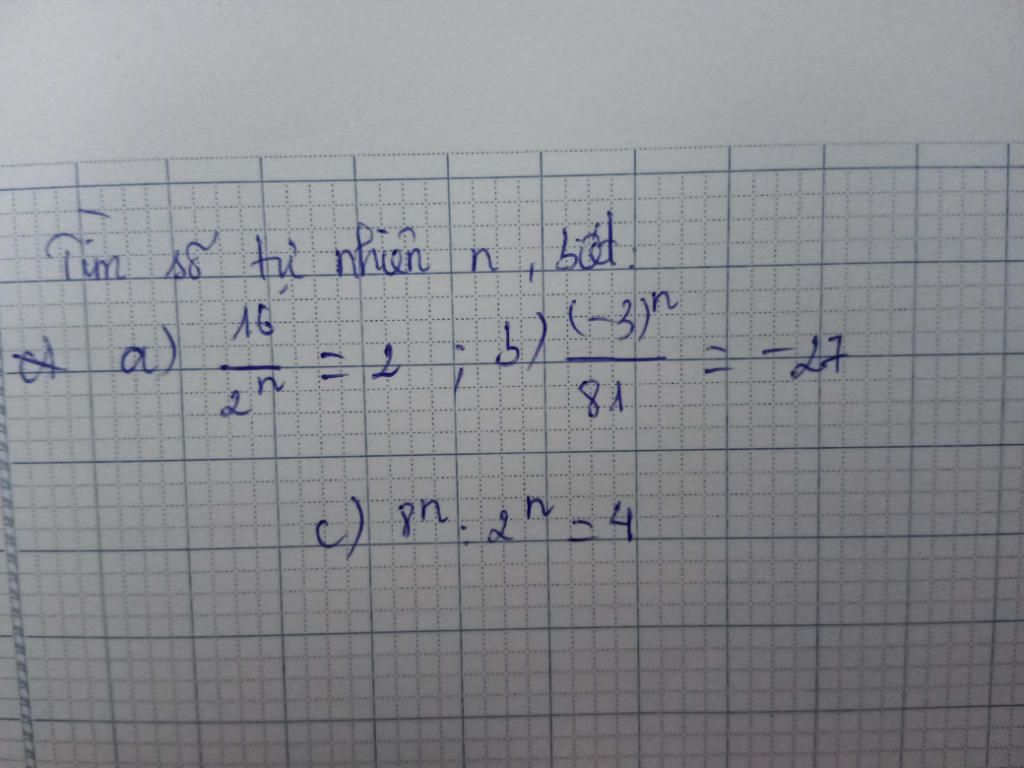 Tìm số tự nhiên n, biết.
a) 16/2^n = 2 ; b) (-3)^n/81 = -27
c) 8^n : 2^n = 4